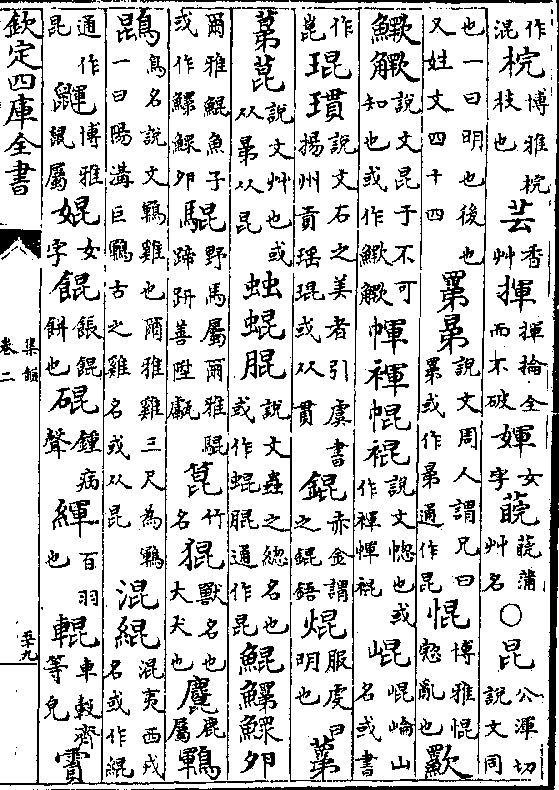 作混梡博雅梡枝也芸香艸揮揮掄全而不破媈女字䓴䓴蒲艸名○昆公渾切說文同
也一曰明也後也又姓文四十四晜說文周人謂兄曰或作晜通作昆惃博雅惃惛亂也
說文昆于不可知也或作幝褌㡓裩說文幒也或作褌幝裩崐崐崘山名或書
作崑琨瑻說文石之美者引虞書揚州貢瑶琨或从貫錕赤金謂之錕鋙焜服虔曰明也
菎說文艸也或从晜从昆䖵蜫說文蟲之緫名也或作蜫通作昆鯤鰥卵
爾雅鯤魚子或作鰥卵騉野馬屬爾雅騉蹄趼善陞甗箟竹名猑獸名也大犬也鹿屬鶤
鵾鳥名說文鶤雞也爾雅雞三尺為鶤一曰陽溝巨鶤古之雞名或从昆混緄混夷西戎名或作緄
通作昆鼲博雅鼲鼠屬婫女字餛餦餛餅也硍鍾病聲緷百羽也輥車轂齊等皃
欽定四庫全書
集韻
卷二